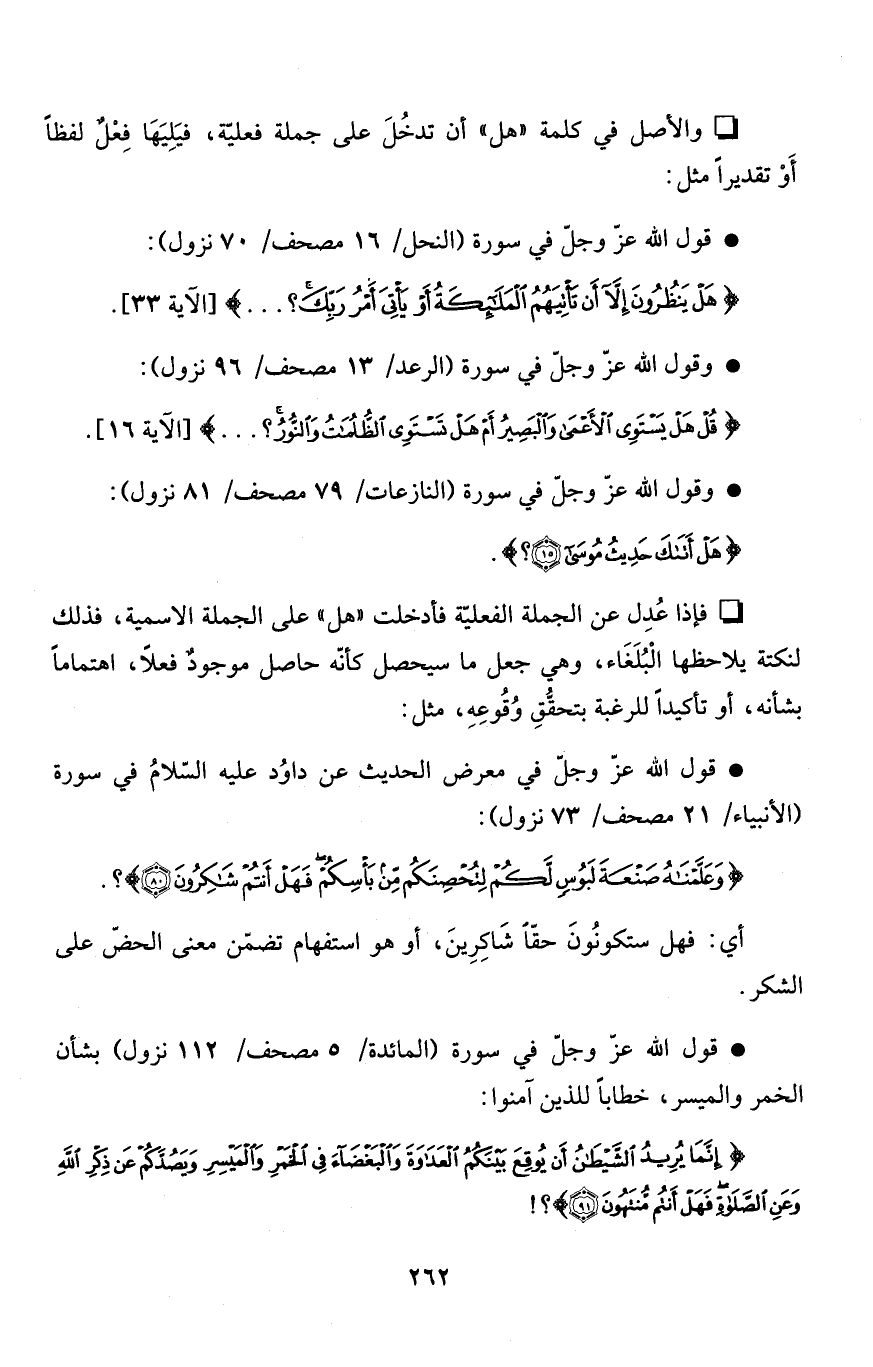 ❑ والأصل في كلمة «هل» أن تدخُلَ على جملة فعليّة، فيَلِيَهَا فِعْلٌ لفظاً
أَوْ تقديراً مثل:
● قول الله عزّ وجلّ في سورة (النحل/ ١٦ مصحف/ ٧٠ نزول):
﴿هَلْ يَنظُرُونَ إِلَّآ أَن تَأْتِيَهُمُ ٱلْمَلَٰٓئِكَةُ أَوْ يَأْتِىَ أَمْرُ رَبِّكَ ۚ؟ . . .﴾ [الآية ٣٣].
● وقول الله عزّ وجلّ في سورة (الرعد/ ١٣ مصحف/ ٩٦ نزول):
﴿قُلْ هَلْ يَسْتَوِى ٱلْأَعْمَىٰ وَٱلْبَصِيرُ أَمْ هَلْ تَسْتَوِى ٱلظُّلُمَٰتُ وَٱلنُّورُ ۚ؟ . . .﴾ [الآية ١٦].
● وقول الله عزّ وجلّ في سورة (النازعات/ ٧٩ مصحف/ ٨١ نزول):
﴿هَلْ أَتَىٰكَ حَدِيثُ مُوسَىٰٓ ١٥؟﴾.
❑ فإذا عُدِل عن الجملة الفعليّة فأدخلت «هل» على الجملة الاسمية، فذلك
لنكتة يلاحظها الْبُلَغَاء، وهي جعل ما سيحصل كأنّه حاصل موجودٌ فعلاً، اهتماماً
بشأنه، أو تأكيداً للرغبة بتحقُّقِ وُقُوعِهِ، مثل:
● قول الله عزّ وجلّ في معرض الحديث عن داوُد عليه السّلامُ في سورة
(الأنبياء/ ٢١ مصحف/ ٧٣ نزول):
﴿وَعَلَّمْنَٰهُ صَنْعَةَ لَبُوسٍ لَّكُمْ لِتُحْصِنَكُم مِّنۢ بَأْسِكُمْ ۖ فَهَلْ أَنتُمْ شَٰكِرُونَ ٨٠﴾؟.
أي: فهل ستكونُونَ حقّاً شَاكِرِينَ، أو هو استفهام تضمّن معنى الحضّ على
الشكر.
● قول الله عزّ وجلّ في سورة (المائدة/ ٥ مصحف/ ١١٢ نزول) بشأن
الخمر والميسر، خطاباً للذين آمنوا:
﴿إِنَّمَا يُرِيدُ ٱلشَّيْطَٰنُ أَن يُوقِعَ بَيْنَكُمُ ٱلْعَدَٰوَةَ وَٱلْبَغْضَآءَ فِى ٱلْخَمْرِ وَٱلْمَيْسِرِ وَيَصُدَّكُمْ عَن ذِكْرِ ٱللَّهِ
وَعَنِ ٱلصَّلَوٰةِ ۖ فَهَلْ أَنتُم مُّنتَهُونَ ٩١﴾؟!
٢٦٢